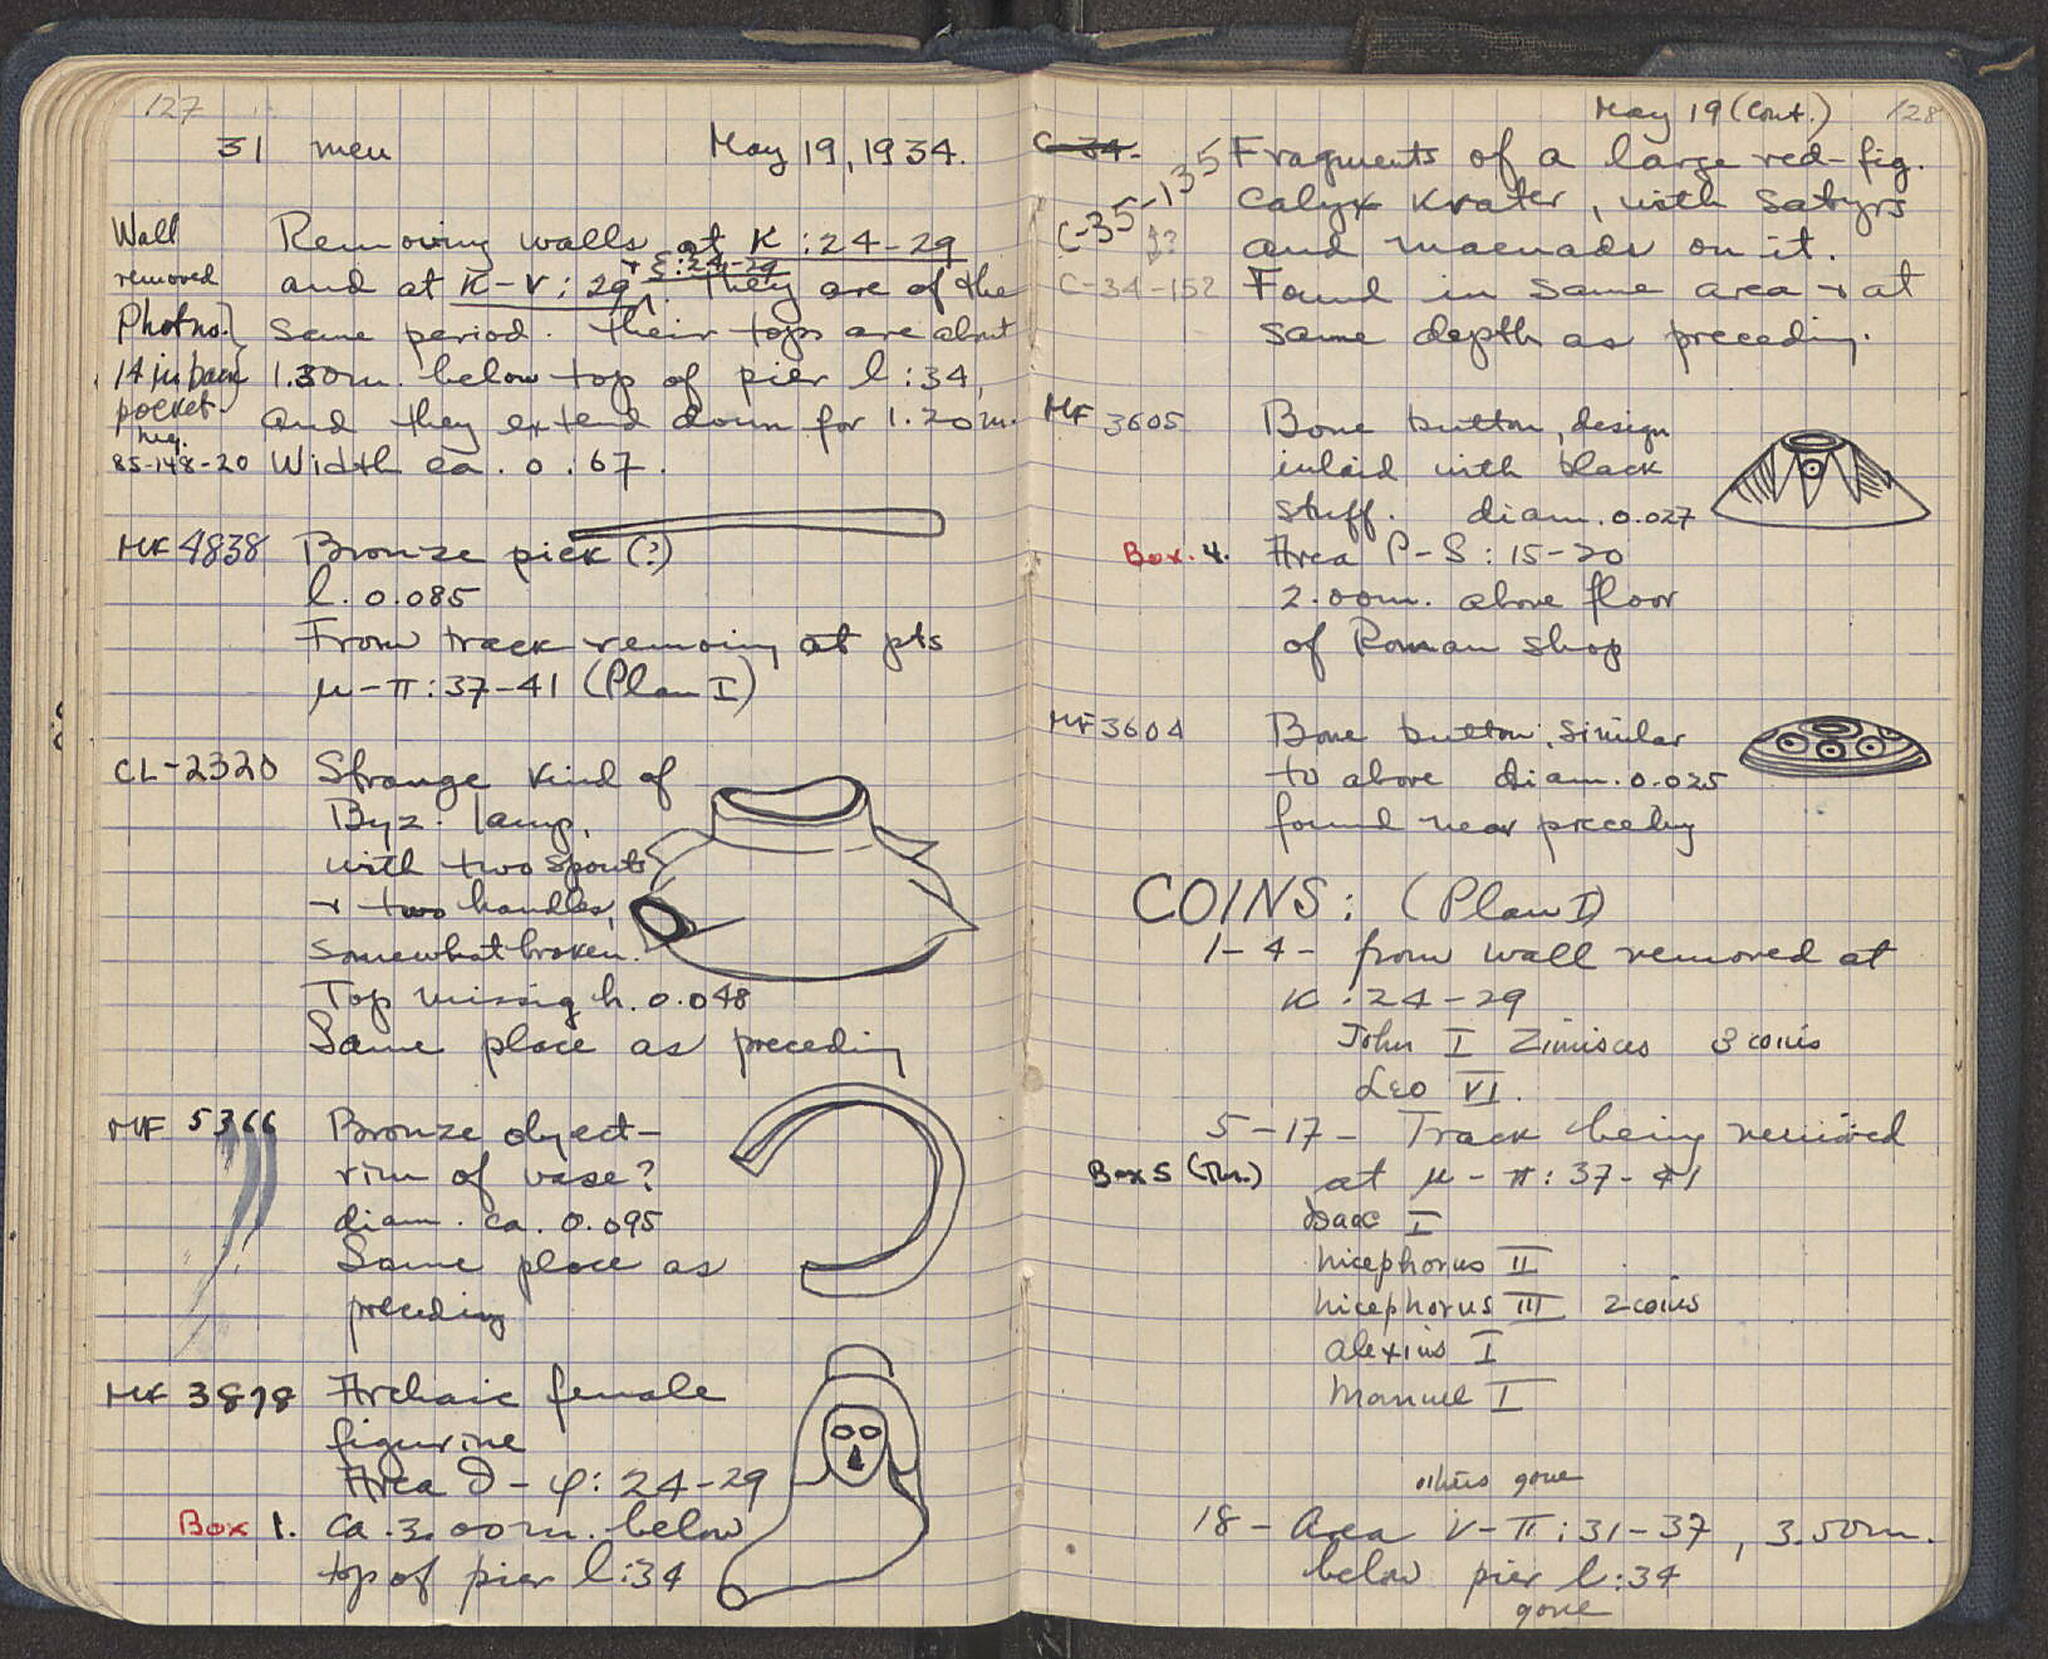 127
31 men May 19, 1934.
Wall
removed
Photno.
14 in back
pocket
neg.
85-148-20
Removing walls at K : 24-29
+ ξ:24-29
and at K-V: 29. They are of the
same period. Their tops are about
1.30m. below top of pier l:34,
and they extend down for 1.20m.
Width ca. 0.67.
MF 4838 Bronze pick (?)
l. 0.085
From track removing at pts
μ-π: 37-41 (Plan I)
CL-2320 Strange kind of
Byz. lamp,
with two spouts
+ two handles,
somewhat broken.
Top missing h. 0.048
Same place as preceding
MF 5366 Bronze object-
rim of vase?
diam. ca. 0.095
Same place as
preceding
MF 3878 Archaic female
figurine
Area - φ: 24-29
Box 1. ca. 3.00m. below
top of pier l:34
May 19 (Cont.) 128
C-34-
C-35-135
↕?
C-34-152
Fragments of a large red-fig.
Calyx Krater, with Satyrs
and maenads on it.
Found in same area + at
same depth as preceding.
MF 3605 Bone button, design
inlaid with black
stuff. diam. 0.027
Box. 4. Area P-S: 15-20
2.00m. above floor
of Roman shop
MF 3604 Bone button, similar
to above diam. 0.025
found near preceding
COINS: (Plan I)
1-4- from wall removed at
K : 24-29
John I Zimisces 3 coins
Leo VI.
5-17- Track being removed
Box 5 (Thr.) at μ-π: 37-41
Isaac I
Nicephorus II
Nicephorus III 2 coins
Alexius I
Manuel I
others gone
18- Area V-π: 31-37, 3.50m.
below pier l:34
gone